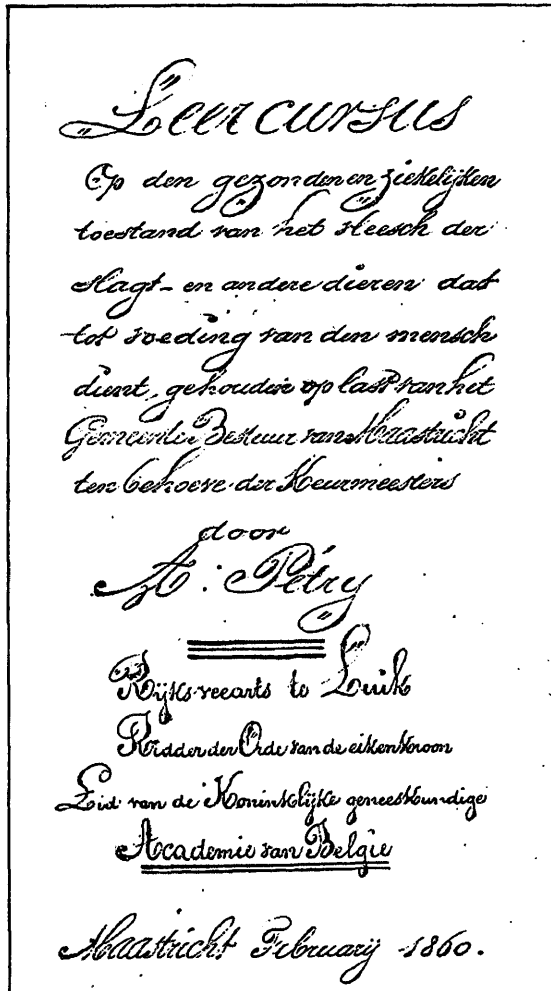 Leercursus
Op den gezonden en ziekelijken
toestand van het vleesch der
slagt- en andere dieren dat
tot voeding van den mensch
dient, gehouden op last van het
Gemeente Bestuur van Maastricht
ten behoeve der Keurmeesters
door
A: Pétry
Rijks-veearts te Luik
Ridder der Orde van de eikenkroon
Lid van de Koninklijke geneeskundige
Academie van België
Maastricht February 1860.